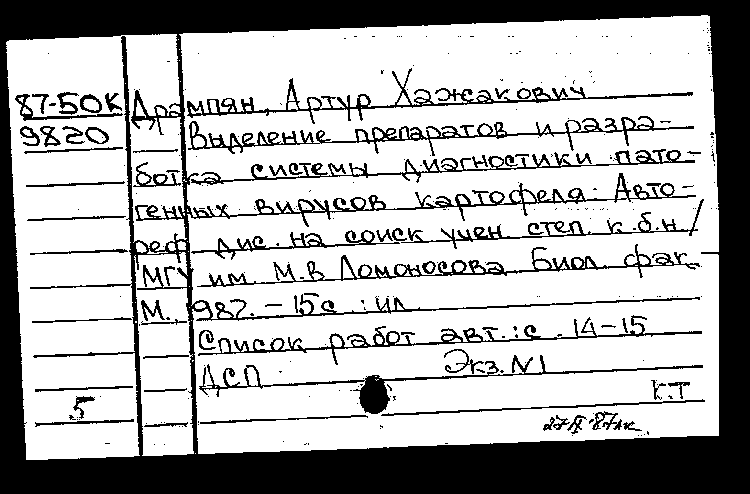 87-50К Дрампян, Артур Хажакович
9820 Выделение препаратов и разра-
ботка системы диагностики пато-
генных вирусов картофеля: Авто-
реф. дис. на соиск учен степ. к.б.н/
МГУ им. М.В Ломоносова Биол. фак.
М., 1987. - 15с. : ил
Список работ авт.: с. 14-15
ДСП Экз. N1
5 К.Т